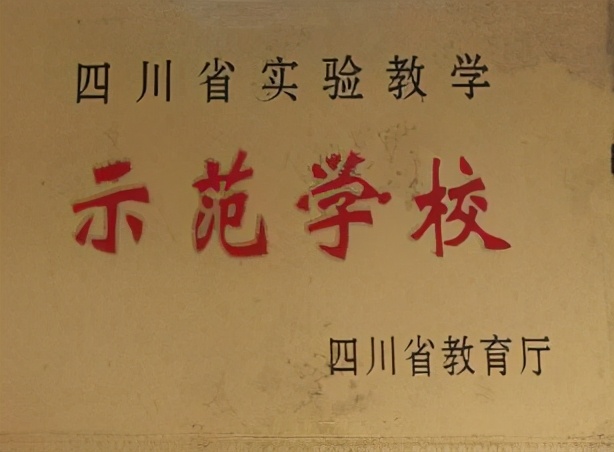 四川省实验教学
示范学校
四川省教育厅